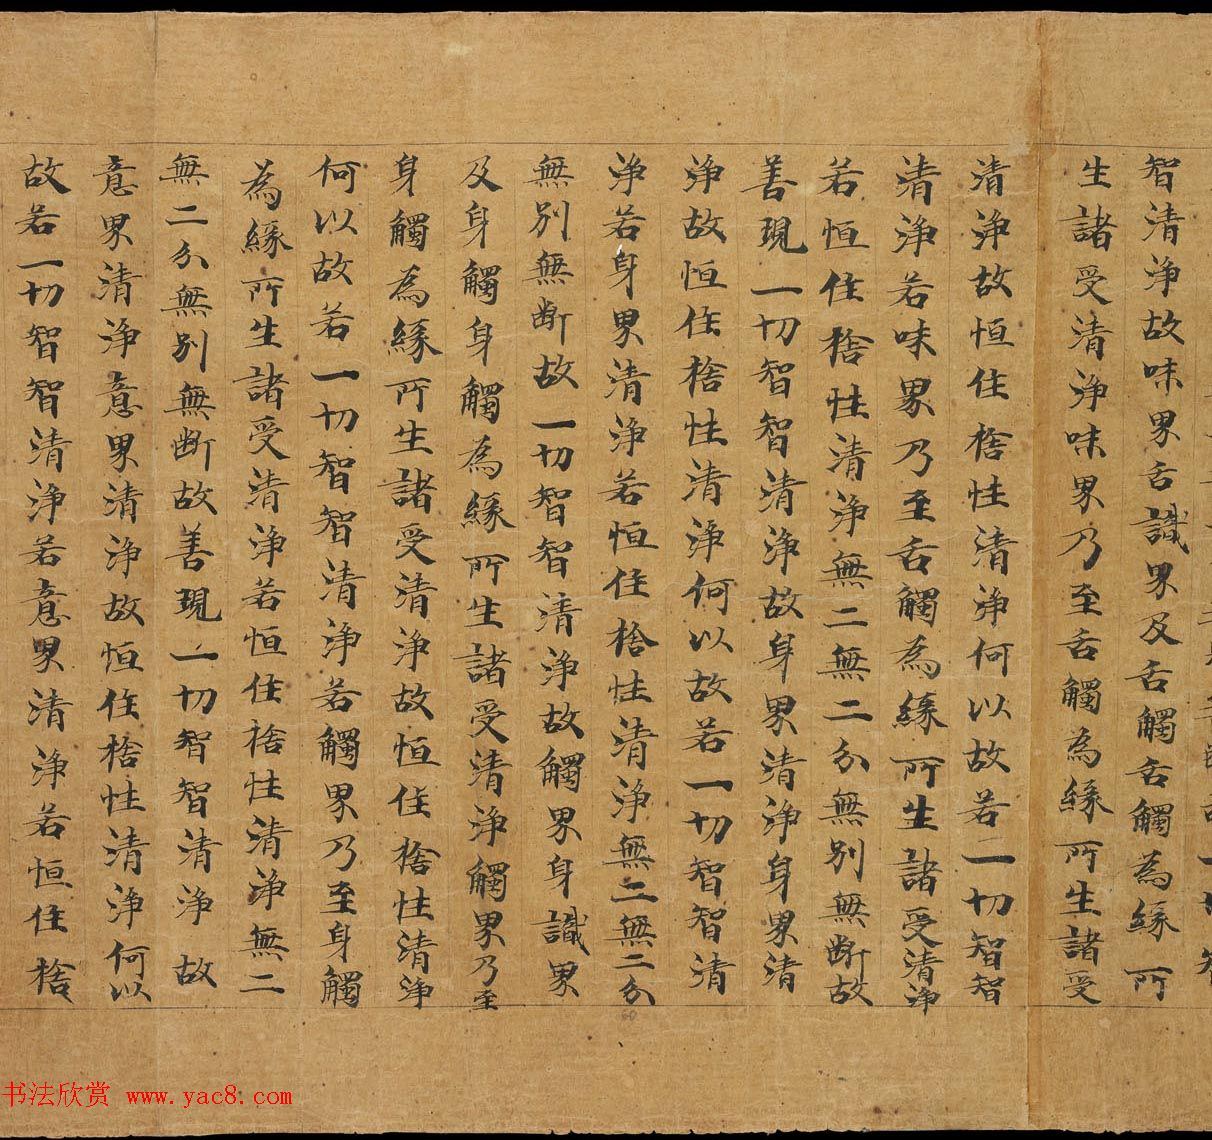 智清浄故味界舌識界及舌觸舌觸為緣所
生諸受清浄味界乃至舌觸為緣所生諸受
清浄故恒住捨性清浄何以故若一切智智
清浄若味界乃至舌觸為緣所生諸受清浄
若恒住捨性清浄無二無二分無別無断故
善現一切智智清浄故身界清浄身界清
浄故恒住捨性清浄何以故若一切智智清
浄若身界清浄若恒住捨性清浄無二無二分
無別無断故一切智智清浄故觸界身識界
及身觸身觸為緣所生諸受清浄觸界乃至
身觸為緣所生諸受清浄故恒住捨性清浄
何以故若一切智智清浄若觸界乃至身觸
為緣所生諸受清浄若恒住捨性清浄無二
無二分無別無断故善現一切智智清浄故
意界清浄意界清浄故恒住捨性清浄何以
故若一切智智清浄若意界清浄若恒住捨
书法欣赏 www.yac8.com